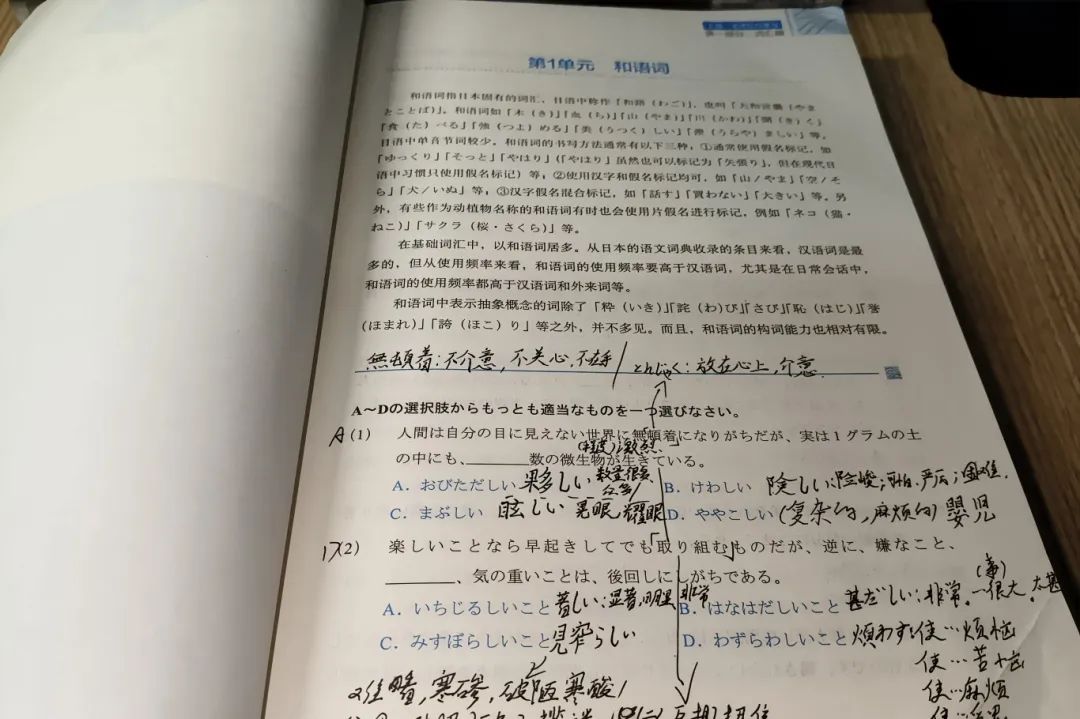 第1单元 和语词
和语词指日本固有的词汇,日语中称作「和語(わご)」,也叫「大和言葉(やま
とことば)」。和语词如「木(き)」「血(ち)」「山(やま)」「川(かわ)」「聞(き)く」
「食(た)べる」「強(つよ)める」「美(うつく)しい」「羨(うらや)ましい」等。
日语中单音节词较少。和语词的书写方法通常有以下三种:①通常使用假名标记,如
「ゆっくり」「そっと」「やはり」(「やはり」虽然也可以标记为「矢張り」,但在现代日
语中习惯只使用假名标记)等;②使用汉字和假名标记均可,如「山/やま」「空/そ
ら」「犬/いぬ」等;③汉字假名混合标记,如「話す」「買わない」「大きい」等。另
外,有些作为动植物名称的和语词有时也会使用片假名进行标记,例如「ネコ(猫・
ねこ)」「サクラ(桜・さくら)」等。
在基础词汇中,以和语词居多。从日本的语文词典收录的条目来看,汉语词是最
多的,但从使用频率来看,和语词的使用频率要高于汉语词,尤其是在日常会话中,
和语词的使用频率都高于汉语词和外来词等。
和语词中表示抽象概念的词除了「粋(いき)」「詫(わ)び」「さび」「恥(はじ)」「誉
(ほまれ)」「誇(ほこ)り」等之外,并不多见。而且,和语词的构词能力也相对有限。
無頓着:不介意,不关心,不在乎/とんじゃく:放在心上,介意
A~Dの選択肢からもっとも適当なものを一つ選びなさい。
A (1) 人間は自分の目に見えない世界に無頓着になりがちだが、実は1グラムの土
の中にも、______数の微生物が生きている。
A. おびただしい 夥しい 数量很多 B. けわしい 険しい:险峻;可怕,严厉;困难.
C. まぶしい 眩しい 晃眼,耀眼 D. ややこしい(复杂的,麻烦的) 嬰児
D (2) 楽しいことなら早起きしてでも取り組むものだが、逆に、嫌なこと、
______、気の重いことは、後回しにしがちである。
A. いちじるしいこと 著しい:显著,明显 非常 B. はなはだしいこと 甚だしい:非常,很大,太甚
C. みすぼらしいこと 見窄らしい D. わずらわしいこと 煩わす:使…烦恼
使…苦恼
寒碜,破陋寒酸
使…麻烦